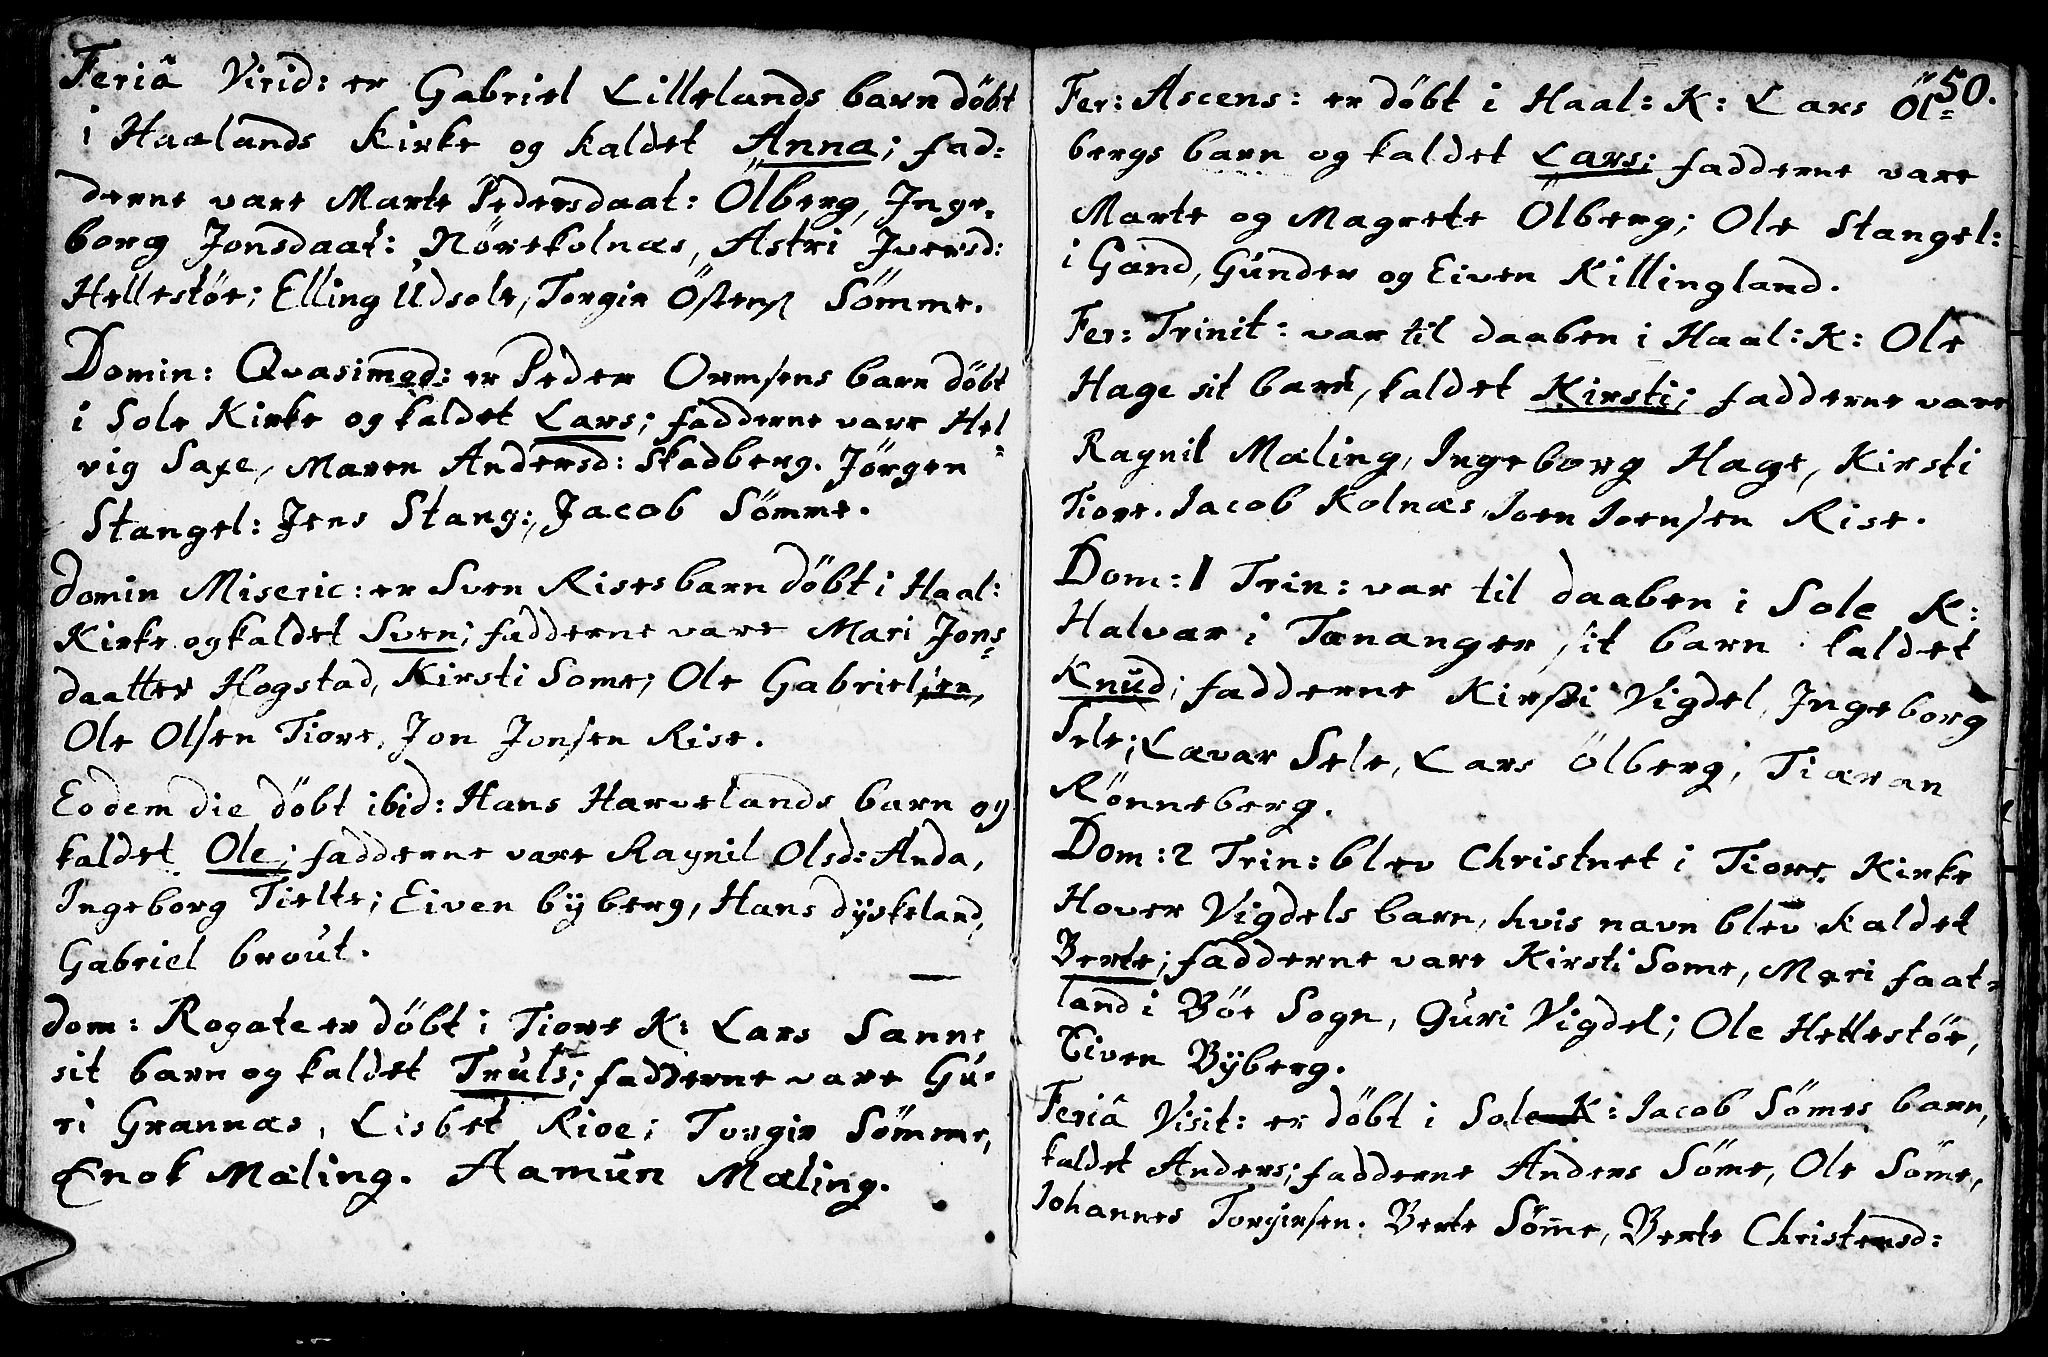 Feriâ Virid: er Gabriel Lillelands barn döbt
i Haalands Kirke og kaldet Anna; fad=
derne vare Marte Pedersdaat: Ölberg, Inge=
borg Jonsdaat: Nörekolnæs, Astri Iversd:
Hellestöe; Elling Udsole, Torgir Östens Sömme.
Domin: Qvasimod: er Peder Ormsens barn döbt
i Sole Kirke og kaldet Lars; fadderne vare Hel=
vig Saxe, Maren Andersd: Skadberg. Jörgen
Stangel: Jens Stang:, Jacob Sömme.
Domin Miseric: er Sven Rises barn döbt i Haal:
Kirke og kaldet Sven; fadderne vare Mari Jons=
daatter Hogstad, Kirsti Some; Ole Gabrielsen,
Ole Olsen Tiore, Jon Jonsen Rise.
Eodem die döbt ibid: Hans Harvelands barn og
kaldet Ole; fadderne vare Ragnil Olsd: Anda,
Ingeborg Tielte; Eiven byberg, Hans dyskeland,
Gabriel brout.
Dom: Rogate er döbt i Tiore K: Lars Sanne
sit barn og kaldet Truls; fadderne vare Gu=
ri Grannæs, Lisbet Rioe; Torgir Sömme,
Enok Mæling. Aamun Mæling.
50.
Fer: Ascens: er döbt i Haal: K: Lars Öl=
bergs barn og kaldet Lars; fadderne vare
Marte og Magrete Ölberg; Ole Stangel:
i Gand, Gunder og Eiven Killingland.
Fer: Trinit: var til daaben i Haal: K: Ole
Hage sit barn, kaldet Kirsti; fadderne vare
Ragnil Mæling, Ingeborg Hage, Kirsti
Tiore. Jacob Kolnæs, Joen Joensen Rise.
Dom: 1 Trin: var til daaben i Sole K:
Halvar i Tænanger sit barn kaldet
Knud; fadderne Kirsti Vigdel, Ingeborg
Sele; Lavar Sele, Lars Ölberg, Tiæran
Rönneberg.
Dom: 2 Trin: blev Christnet i Tiore Kirke
Hover Vigdels barn, hvis navn blev kaldet
Berte; fadderne vare Kirsti Some, Mari faat=
land i Böe Sogn, Guri Vigdel; Ole Hellestöe,
Eiven Byberg.
Feriâ Visit: er döbt i Sole K: Jacob Sömes barn,
kaldet Anders; fadderne Anders Söme, Ole Söme,
Johannes Torgirsen. Berte Söme, Berte Christensd: